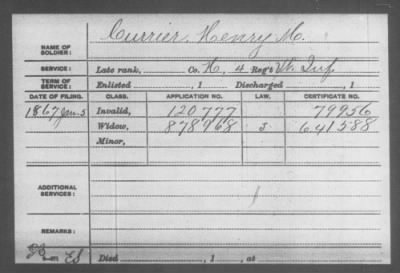 NAME OF SOLDIER: Currier, Henry M.
SERVICE: Late rank, Co. H, 4 Reg't Vt. Inf
TERM OF SERVICE: Enlisted , 1 Discharged , 1
DATE OF FILING. CLASS. APPLICATION NO. LAW. CERTIFICATE NO.
1867 Jan. 5 Invalid, 120777 79956
Widow, 878968 3 641588
Minor,
ADDITIONAL SERVICES:
REMARKS:
Died , 1 , at